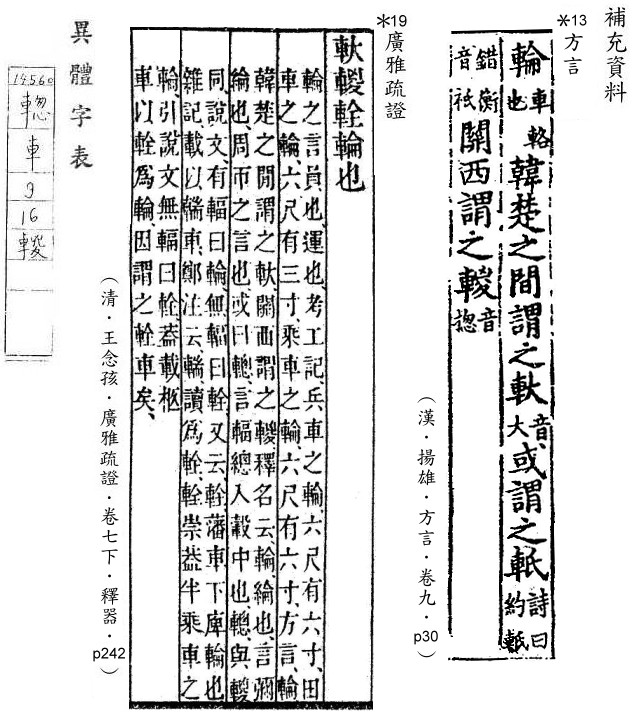 補充資料
*13 方言
輪車輅也韓楚之間謂之軑音大或謂之軝詩曰約軝
錯衡音祇關西謂之䡯音揔
(漢．揚雄．方言．卷九．p30)
*19 廣雅疏證
軑䡯輇輪也
輪之言員也、運也、考工記、兵車之輪、六尺有六寸、田
車之輪、六尺有三寸、乘車之輪、六尺有六寸、方言、輪
韓楚之閒謂之軑、關西謂之䡯、釋名云、輪、綸也、言彌
綸也、周帀之言也、或曰、言輻總入轂中也、與䡯
同、說文、有輻曰輪、無輻曰輇、又云、輇、藩車下庳輪也
雜記、載以輲車、鄭注云、輲、讀爲輇、輇崇蓋半乘車之
輪、引說文無輻曰輇、蓋載柩
車以輇爲輪、因謂之輇車矣、
(清．王念孫．廣雅疏證．卷七下．釋器．p242)
異體字表
14560
車
9
16
䡯